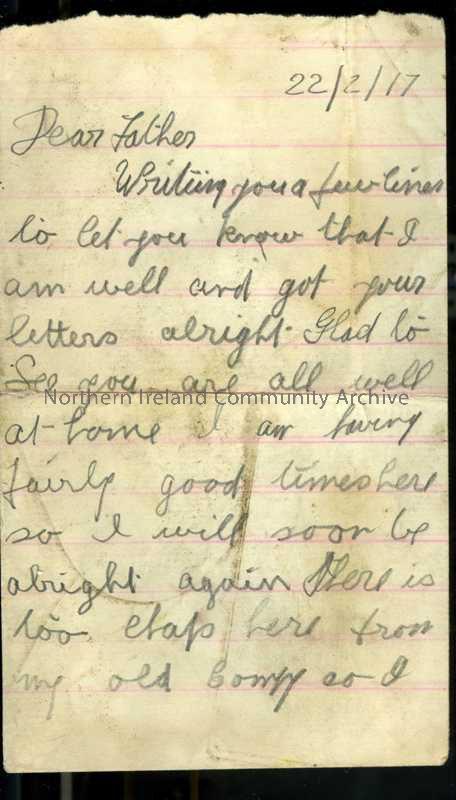 22/2/17
Dear Father
Writing you a few lines
to let you know that I
am well and got your
letters alright Glad to
See you are all well
Northern Ireland Community Archive
at home I am having
fairly good times here
so I will soon be
alright again There is
too chaps here from
my old Compy so I